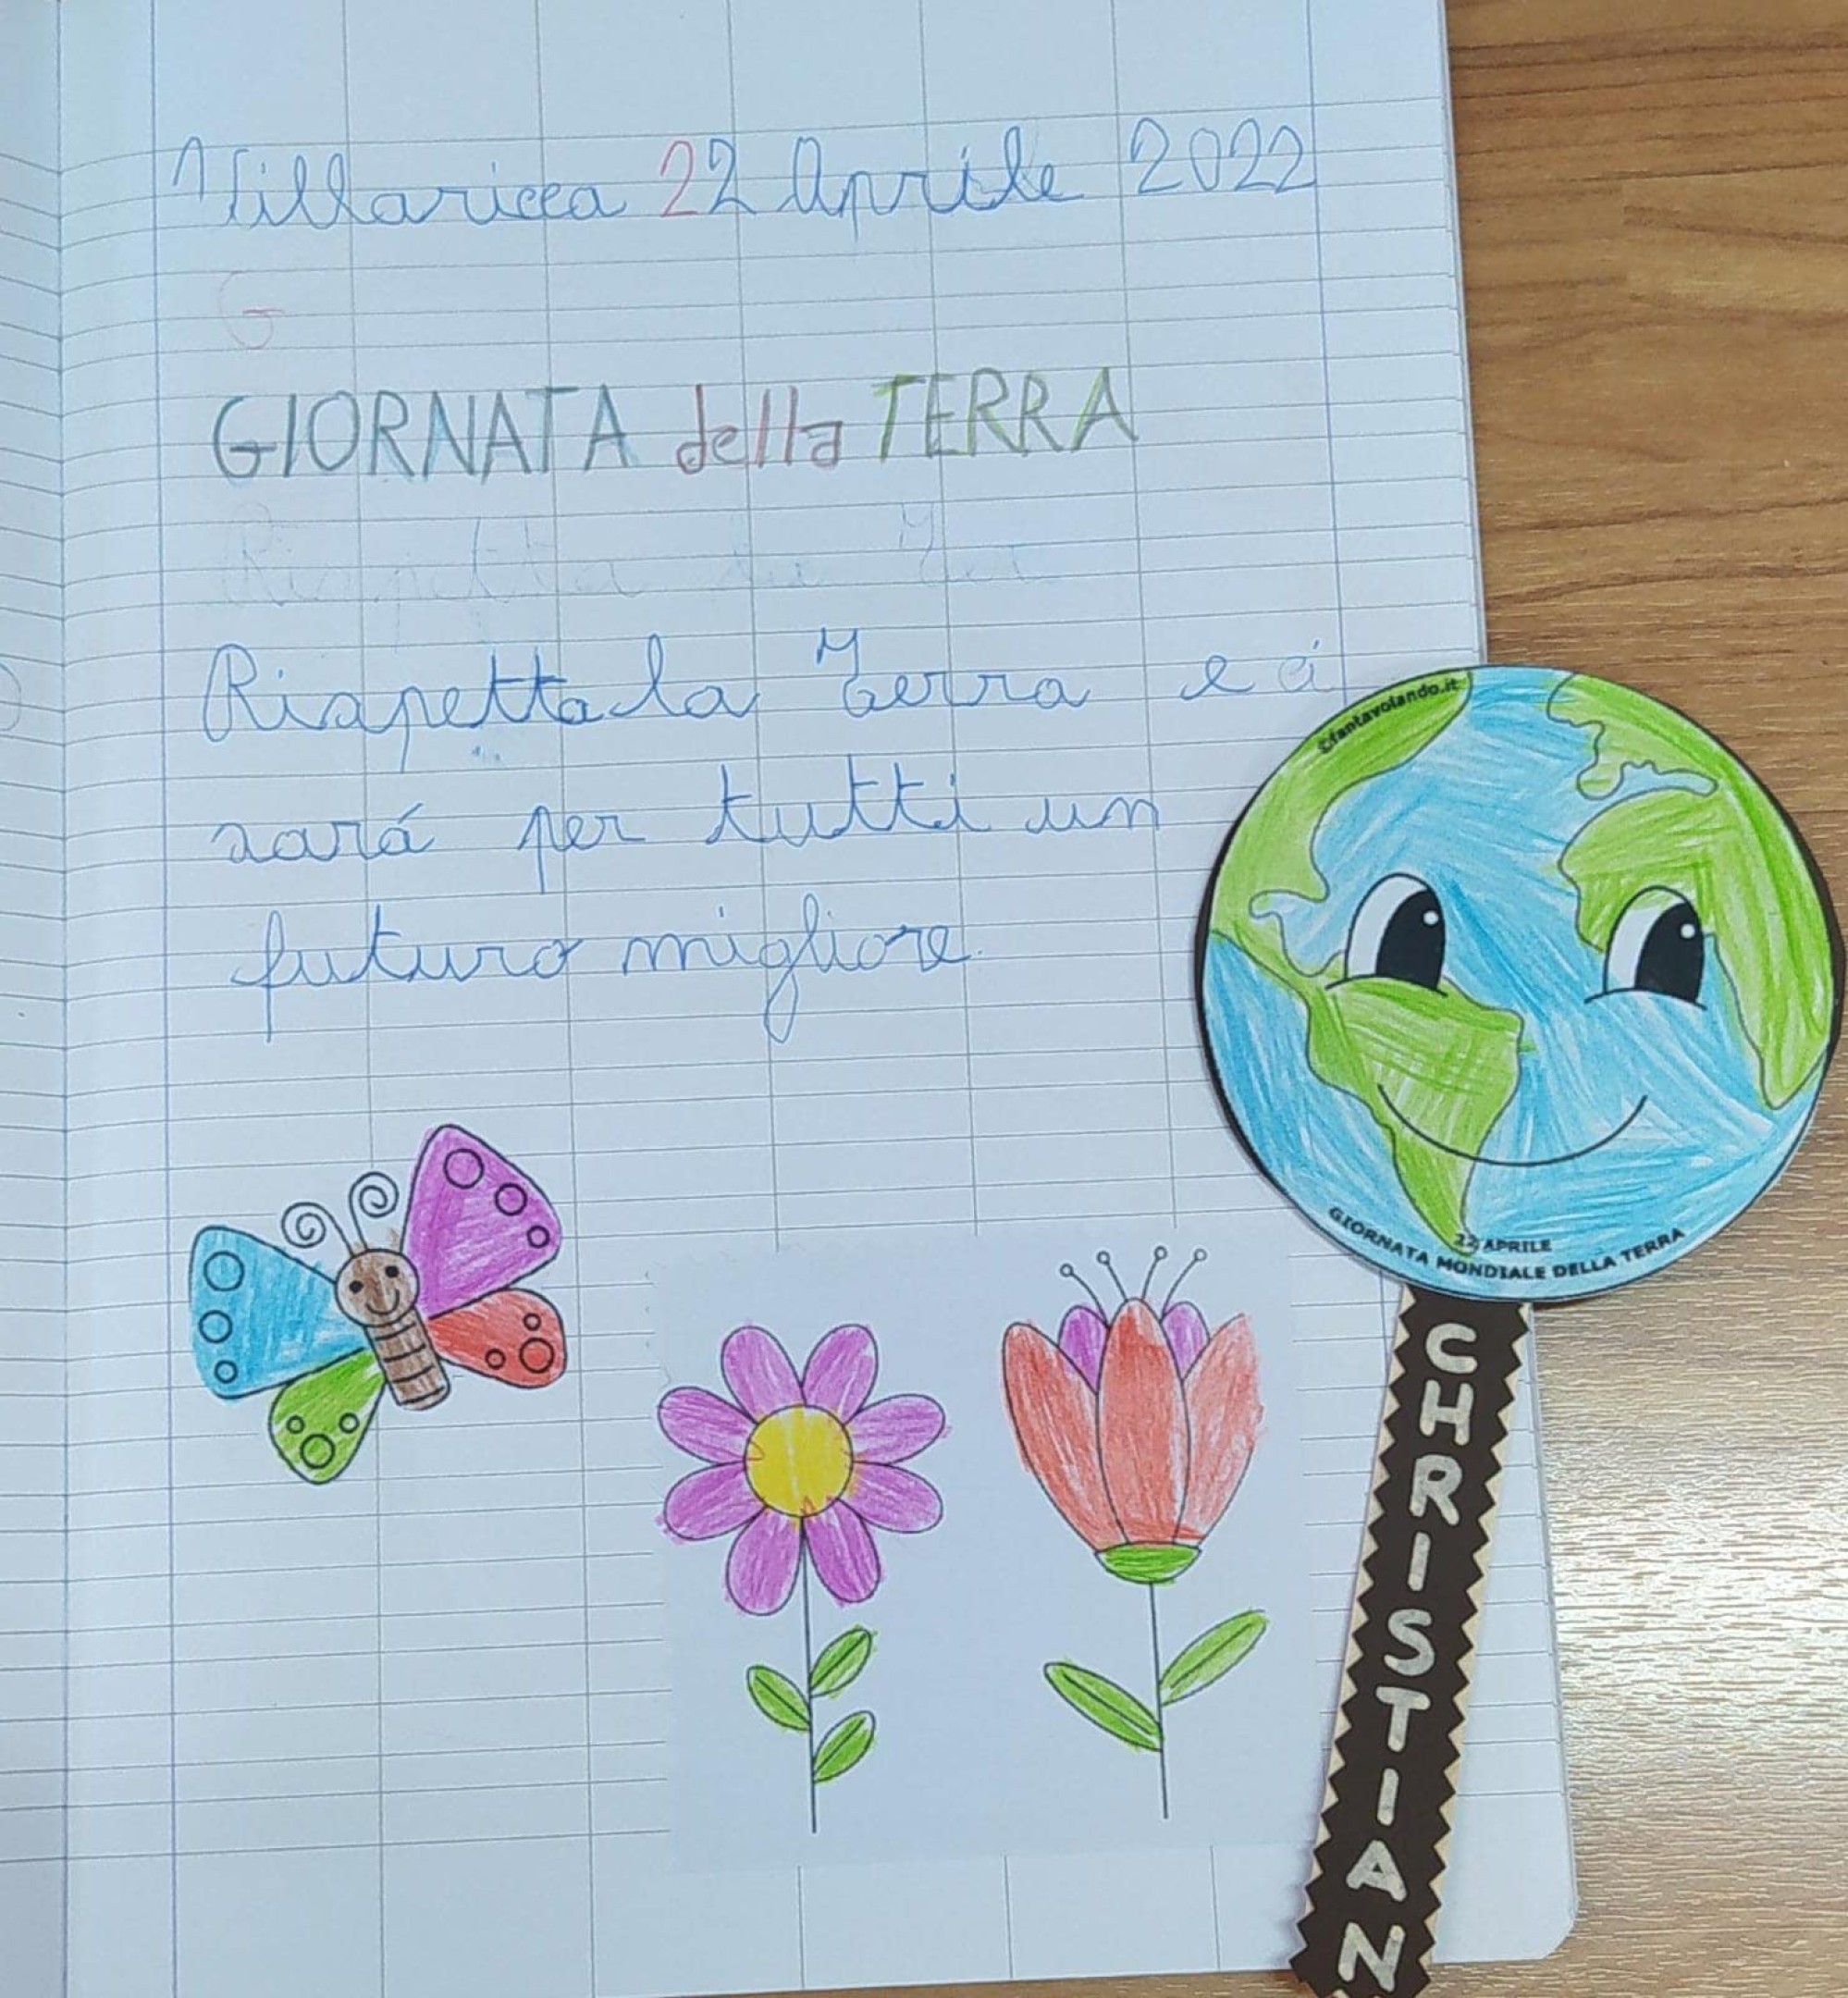 Villaricca 22 Aprile 2022
G
GIORNATA della TERRA
Rispetta la Terra e ci
sará per tutti un
futuro migliore.
©fantavolando.it
22 APRILE
GIORNATA MONDIALE DELLA TERRA
CHRISTIAN